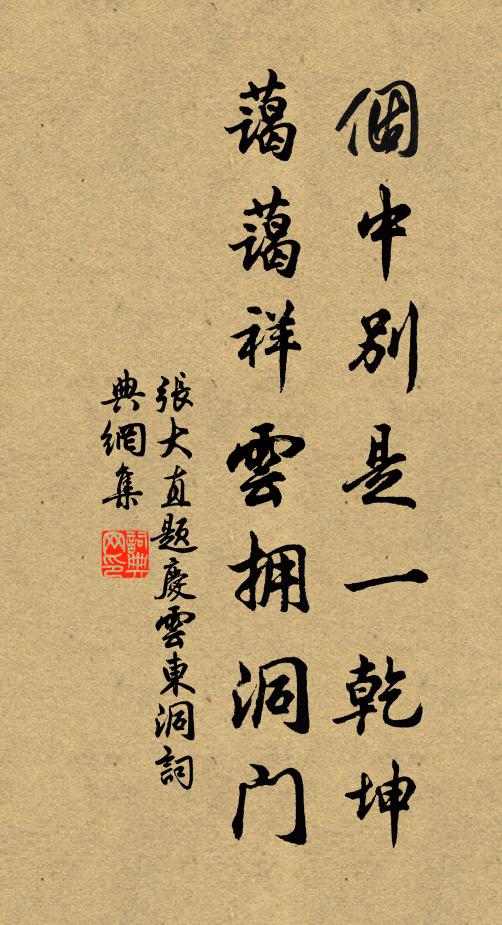 個中別是一乾坤
藹藹祥雲拥洞门
張大直題慶雲東洞詞
典網集
詞典
网印